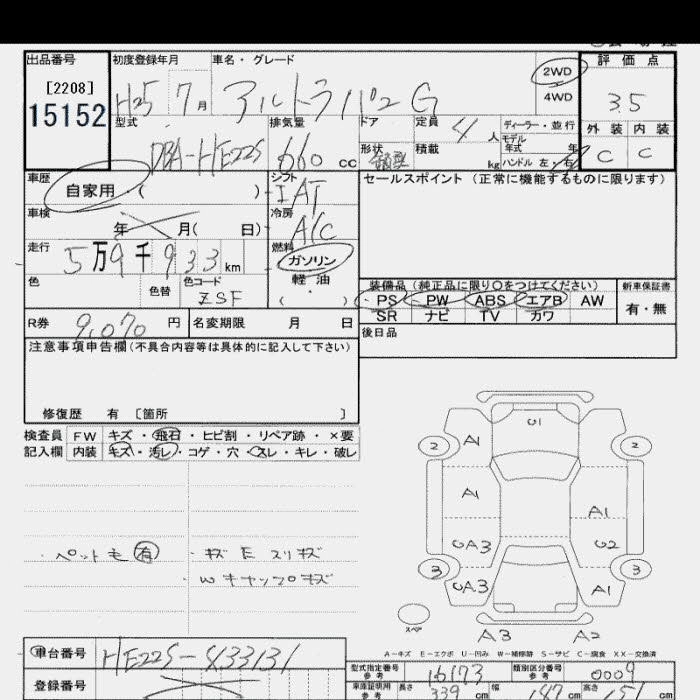 出品番号 初度登録年月 車名・グレード 評価点
[2208]
15152
H25 7月 アルトラパン G 2WD 3.5
4WD
型式 排気量 ドア 定員 4人 ディーラー・並行 外装 内装
DBA-HE22S 660 cc 形状 積載 kg モデル年式 年 C C
ハンドル 左・右
車歴 シフト セールスポイント (正常に機能するものに限ります)
自家用 ( ) IAT
車検 冷房
年 月( 日) A/C
走行 5万9千933km 燃料
ガソリン
色 色替 色コード 軽油
ZSF ( )
装備品 (純正品に限り〇をつけてください) 新車保証書
PS PW ABS エアB AW 有・無
SR ナビ TV カワ
R券 9,070 円 名変期限 月 日
後日品
注意事項申告欄(不具合内容等は具体的に記入して下さい)
修復歴 有 〔箇所 〕
検査員 FW キズ・飛石・ヒビ割・リペア跡・×要
記入欄 内装 キズ・汚レ・コゲ・穴・スレ・キレ・破レ
・ペット毛 有 ・キズ E スリキズ
・Wキャップキズ
U1
2 A1 2
A1 A1
UA3 U2
3 UA3 A1 3
スペア
A3 A2
A-キズ E-エクボ U-凹み W-補修跡 S-サビ C-腐食 XX-交換済
車台番号 HE22S-
登録番号
型式指定番号 参考 16173 類別区分番号 参考 0009
車庫証明用 参考 長さ 339 cm 幅 147 cm 高さ cm